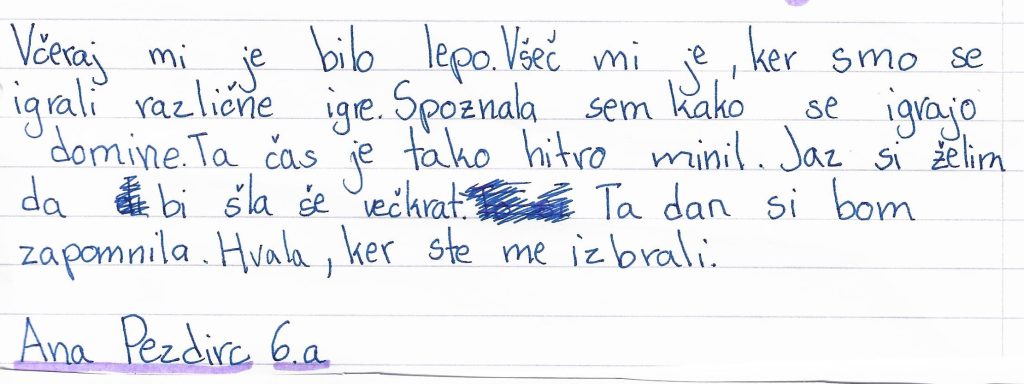 Včeraj mi je bilo lepo. Všeč mi je, ker smo se
igrali različne igre. Spoznala sem kako se igrajo
domine. Ta čas je tako hitro minil. Jaz si želim
da bi šla še večkrat. Ta dan si bom
zapomnila. Hvala, ker ste me izbrali.
Ana Pezdirc 6.a